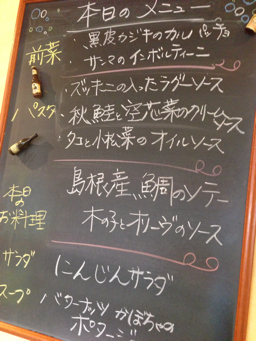 本日のメニュー
前菜
・黒皮カジキのカルパッチョ
・サンマのインボルティーニ
パスタ
・ズッキーニの入ったラグーソース
・秋鮭と空芯菜のクリームソース
・タコと小松菜のオイルソース
本日のお料理
島根産鯛のソテー
木の子とオリーヴのソース
サラダ
にんじんサラダ
スープ
バターナッツかぼちゃの
ポタージュ